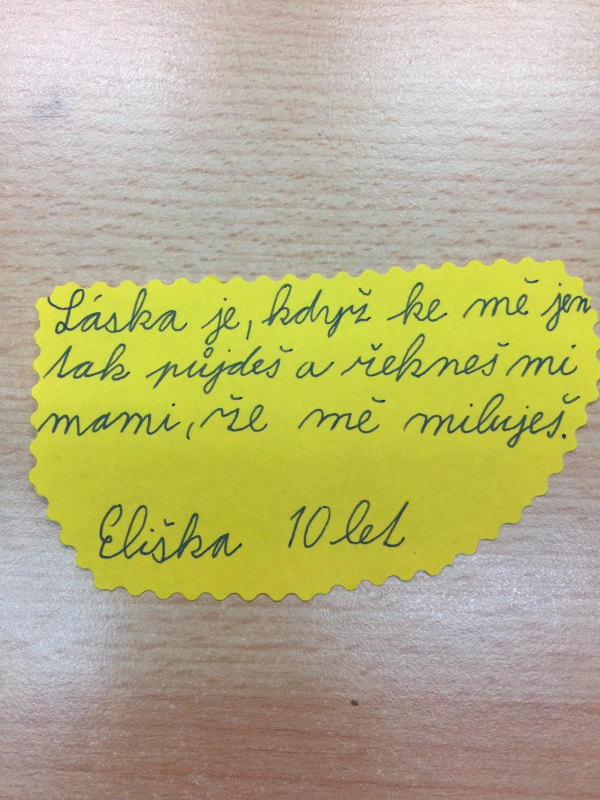 Láska je, když ke mě jen
tak půjdeš a řekneš mi
mami, že mě miluješ.
Eliška 10 let